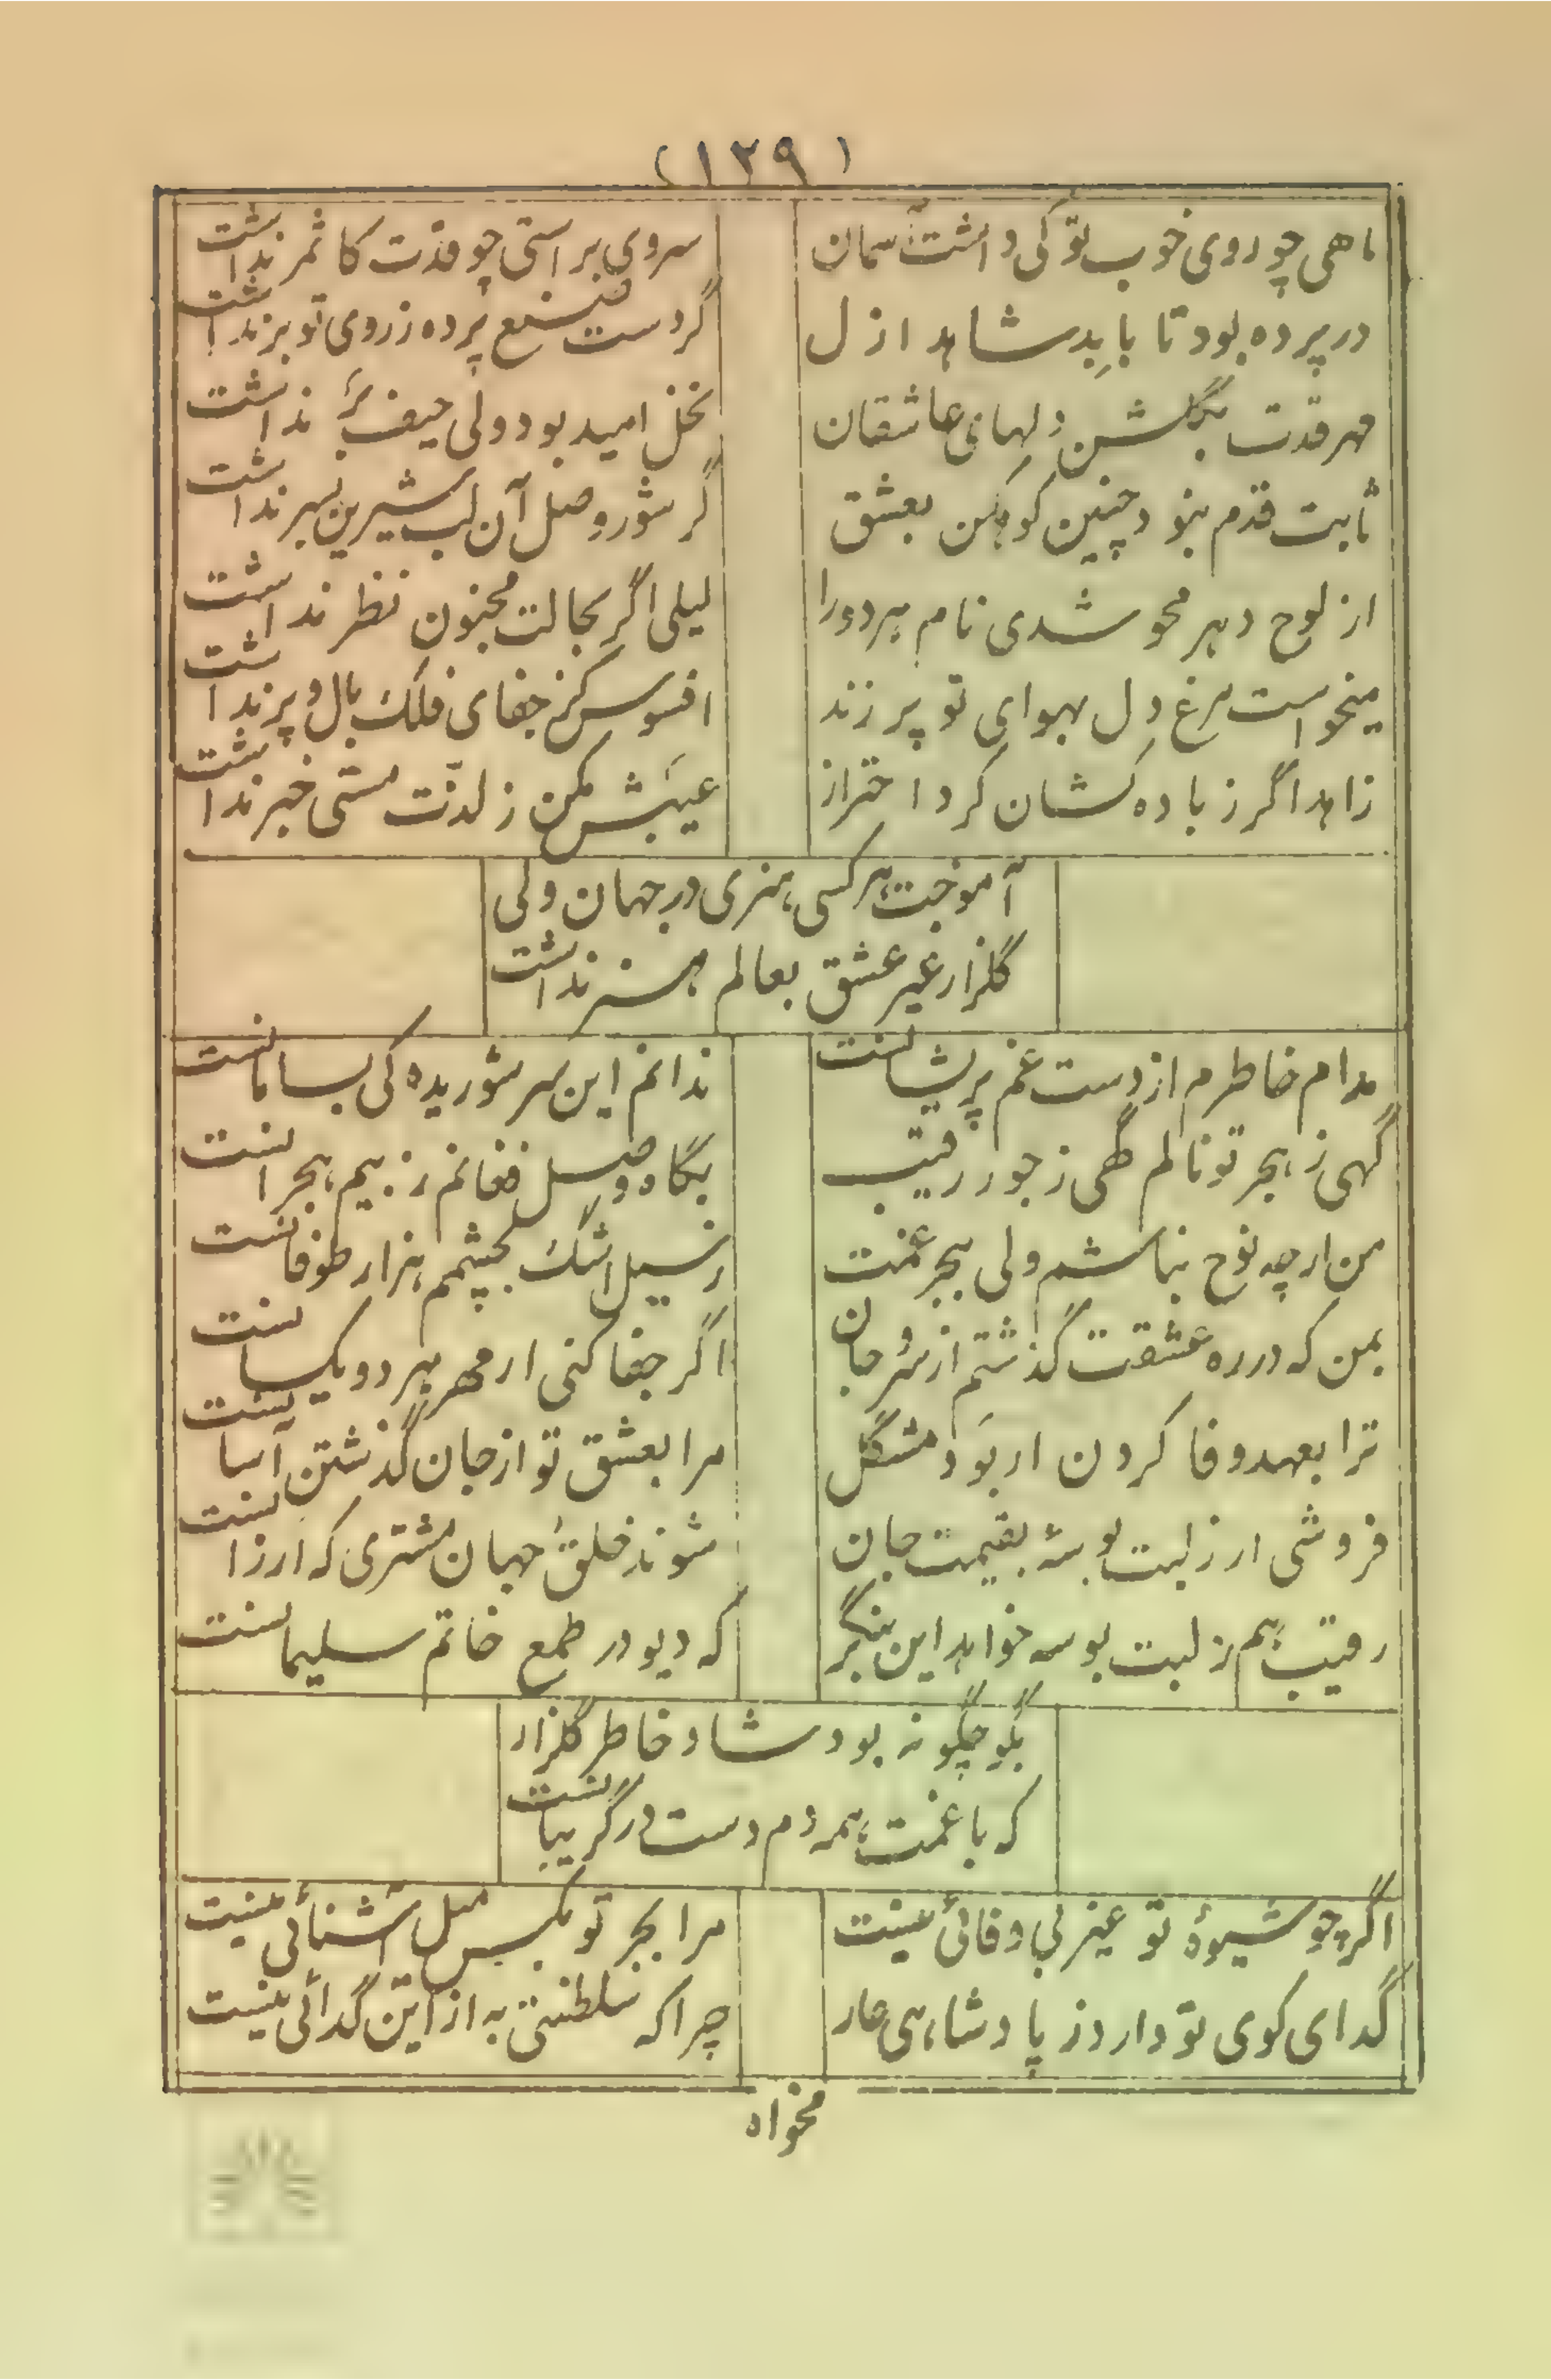 (۱۲۹)
ماهی چو روی خوب تو کی داشت آسمان
سروی براستی چو قدت کاشمر نداشت
در پرده بود تا بابد شاهد ازل
گر دست صنع پرده ز روی تو بر نداشت
مهر قدت بگلشن دلهای عاشقان
نخل امید بود ولی حیف بَر نداشت
ثابت قدم نبود چنین کوهکن بعشق
گر شور وصل آن لب شیرین بسر نداشت
از لوح دهر محو شدی نام هر دو را
لیلی اگر بحالت مجنون نظر نداشت
میخواست مرغ دل بهوای تو پر زند
افسوس کز جفای فلک بال و پر نداشت
زاهد اگر ز باده کشان کرد احتراز
عیبش مکن ز لذّت مستی خبر نداشت
آموخت هر کسی هنری در جهان ولی
گلزار غیر عشق بعالم هنر نداشت
مدام خاطرم از دست غم پریشانست
ندانم این سر شوریده کی بسامانست
گهی ز هجر تو نالم گهی ز جور رقیب
بگاه وصل فغانم ز بیم هجرانست
من ار چه نوح نباشم ولی ببحر غمت
ز سیل اشک بچشمم هزار طوفانست
بمن که در ره عشقت گذشتم از سر و جان
اگر جفا کنی ار مهر هر دو یکسانست
ترا بعهد وفا کردن ار بوَد مشگل
مرا بعشق تو از جان گذشتن آسانست
فروشی ار ز لبت بوسهٔ بقیمت جان
شوند خلق جهان مشتری که ارزانست
رقیب هم ز لبت بوسه خواهد این بنگر
که دیو در طمع خاتم سلیمانست
بگو چگونه بود شاد خاطر گلزار
که با غمت همه دم دست در گریبانست
اگر چو شیوهٔ تو غیر بی وفائی نیست
مرا بجز تو بکس میل آشنائی نیست
گدای کوی تو دارد ز پادشاهی عار
چرا که سلطنتی به از این گدائی نیست
مخواه